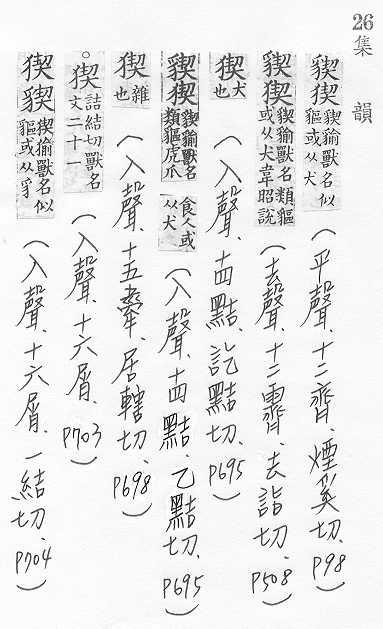 26
集韻
貏猰 猰貐獸名似貙或从犬（平聲、十二齊、煙奚切、P98）
貏猰 猰貐獸名類貙或从犬韋昭說（去聲、十二霽、去詣切、P508）
猰 犬也（入聲、十四黠、訖黠切、P695）
猰 猰貐獸名類貙虎爪食人或从犬（入聲、十四黠、乙黠切、P695）
猰 雜也（入聲、十五舝、居轄切、P698）
。猰 詰結切獸名文二十一（入聲、十六屑、P703）
猰 猰貐獸名似貙或从豸（入聲、十六屑、一結切、P704）